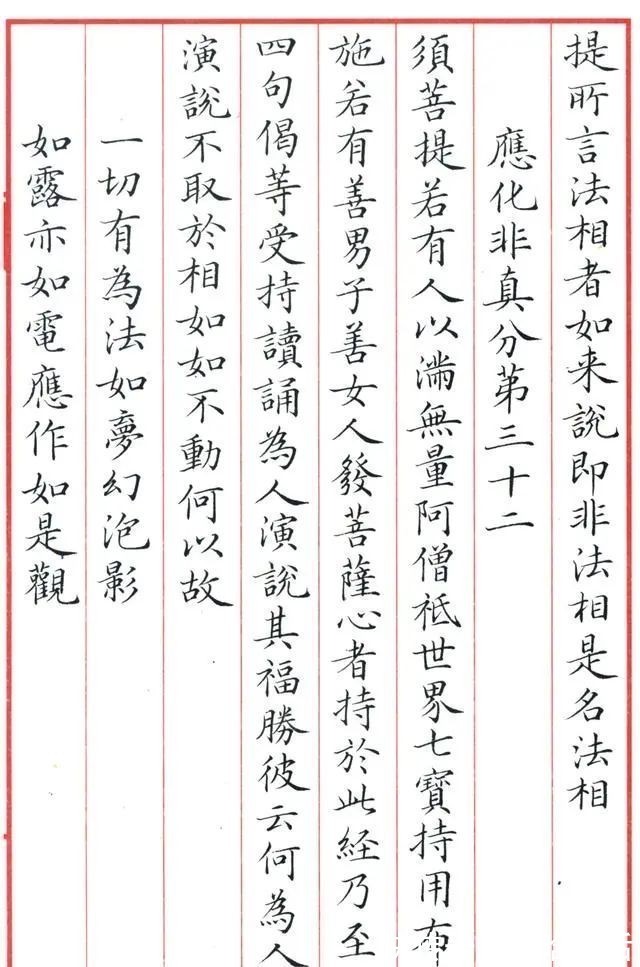 提所言法相者如来說即非法相是名法相
應化非真分第三十二
須菩提若有人以滿無量阿僧祇世界七寶持用布
施若有善男子善女人發菩薩心者持於此經乃至
四句偈等受持讀誦為人演說其福勝彼云何為人
演說不取於相如如不動何以故
一切有為法如夢幻泡影
如露亦如電應作如是觀